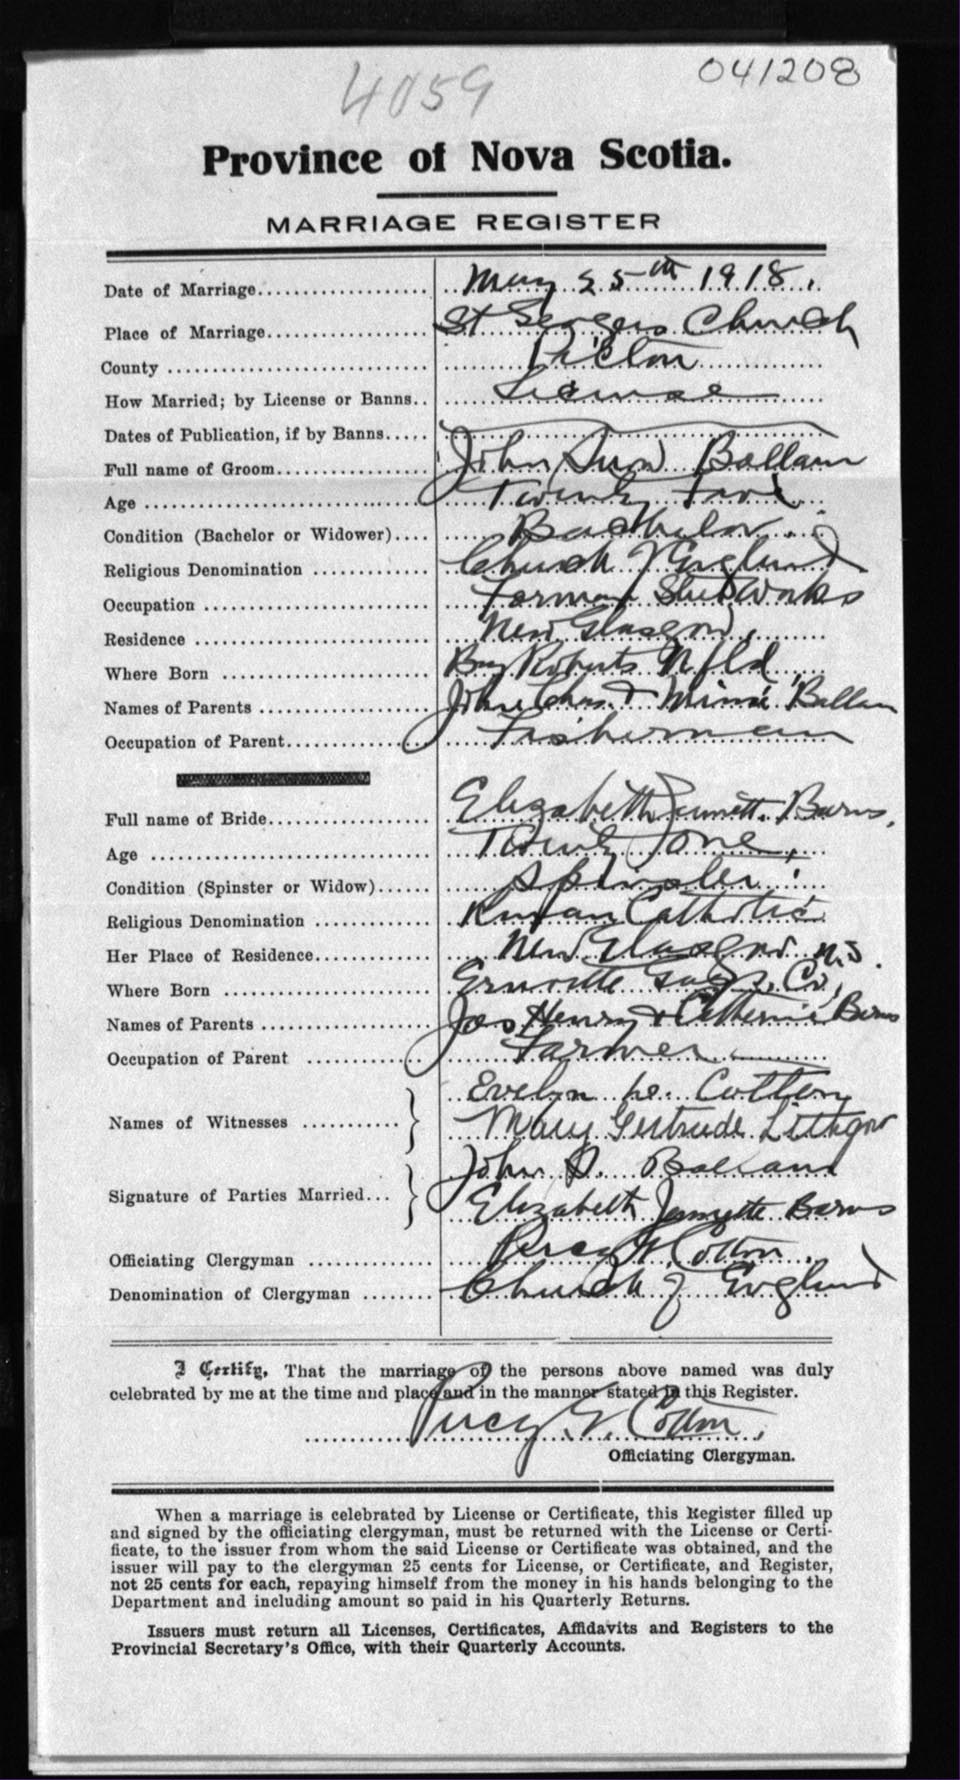 4059
041208
Province of Nova Scotia.
MARRIAGE REGISTER
Date of Marriage May 25th 1918.
Place of Marriage St Georges Church
County Pictou
How Married; by License or Banns License
Dates of Publication, if by Banns
Full name of Groom John Snow Ballam
Age Twenty Five
Condition (Bachelor or Widower) Bachelor
Religious Denomination Church of England
Occupation Forman Steel Works
Residence New Glasgow,
Where Born Bay Roberts Nfld
Names of Parents John Chas. & Minnie Ballam
Occupation of Parent Fisherman
Full name of Bride Elizabeth Burns,
Age Twenty one,
Condition (Spinster or Widow) Spinster
Religious Denomination Roman Catholic
Her Place of Residence New Glasgow N.S.
Where Born Co,
Names of Parents Jos Henry & Catherine Burns
Occupation of Parent Farmer
Names of Witnesses Evelyn Cotton
Mary Gertrude Lithgow
Signature of Parties Married John S. Ballam
Elizabeth Jennette Burns
Officiating Clergyman Percy G. Cotton.
Denomination of Clergyman Church of England
I Certify, That the marriage of the persons above named was duly
celebrated by me at the time and place and in the manner stated in this Register.
Percy G. Cotton,
Officiating Clergyman.
When a marriage is celebrated by License or Certificate, this Register filled up
and signed by the officiating clergyman, must be returned with the License or Certi-
ficate, to the issuer from whom the said License or Certificate was obtained, and the
issuer will pay to the clergyman 25 cents for License, or Certificate, and Register,
not 25 cents for each, repaying himself from the money in his hands belonging to the
Department and including amount so paid in his Quarterly Returns.
Issuers must return all Licenses, Certificates, Affidavits and Registers to the
Provincial Secretary's Office, with their Quarterly Accounts.